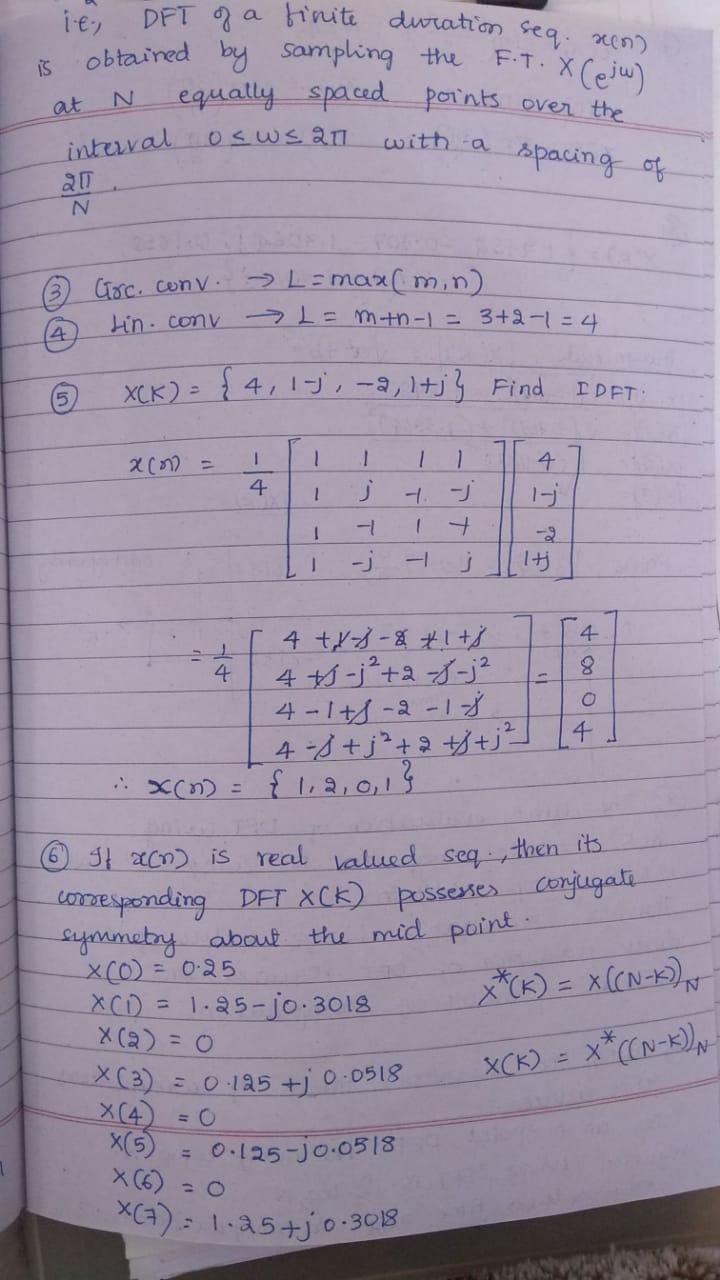 i.e., DFT of a finite duration seq. x(n)
is obtained by sampling the F.T. X(e^jω)
at N equally spaced points over the
interval 0 ≤ ω ≤ 2π with a spacing of
2π/N.
③ Circ. conv. → L = max(m,n)
④ Lin. conv → L = m+n-1 = 3+2-1 = 4
⑤ X(K) = { 4, 1-j, -2, 1+j} Find IDFT.
x(n) = 1/4 [ 1 1 1 1 ] [ 4 ]
[ 1 j -1 -j ] [ 1-j ]
[ 1 -1 1 -1 ] [ -2 ]
[ 1 -j -1 j ] [ 1+j ]
= 1/4 [ 4 +1-j-2 +1+j ] = [ 4 ]
[ 4 +j -j²+2 -j-j² ] [ 8 ]
[ 4 -1+j -2 -1 -j ] [ 0 ]
[ 4 -j +j²+2 +j+j² ] [ 4 ]
∴ x(n) = { 1, 2, 0, 1 }
⑥ If x(n) is real valued seq., then its
corresponding DFT X(K) possesses conjugate
symmetry about the mid point.
X(0) = 0.25
X(1) = 1.25-j0.3018 X*(K) = X((N-K))_N
X(2) = 0
X(3) = 0.125 +j 0.0518 X(K) = X*((N-K))_N
X(4) = 0
X(5) = 0.125-j0.0518
X(6) = 0
X(7) = 1.25+j0.3018